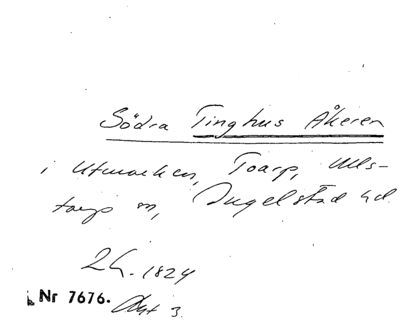 Södra Tinghus Åkeren
i Utmarken, Toarp, Ulls-
torp sn, Ingelstad hd.
1824
Nr 7676. Akt 3.